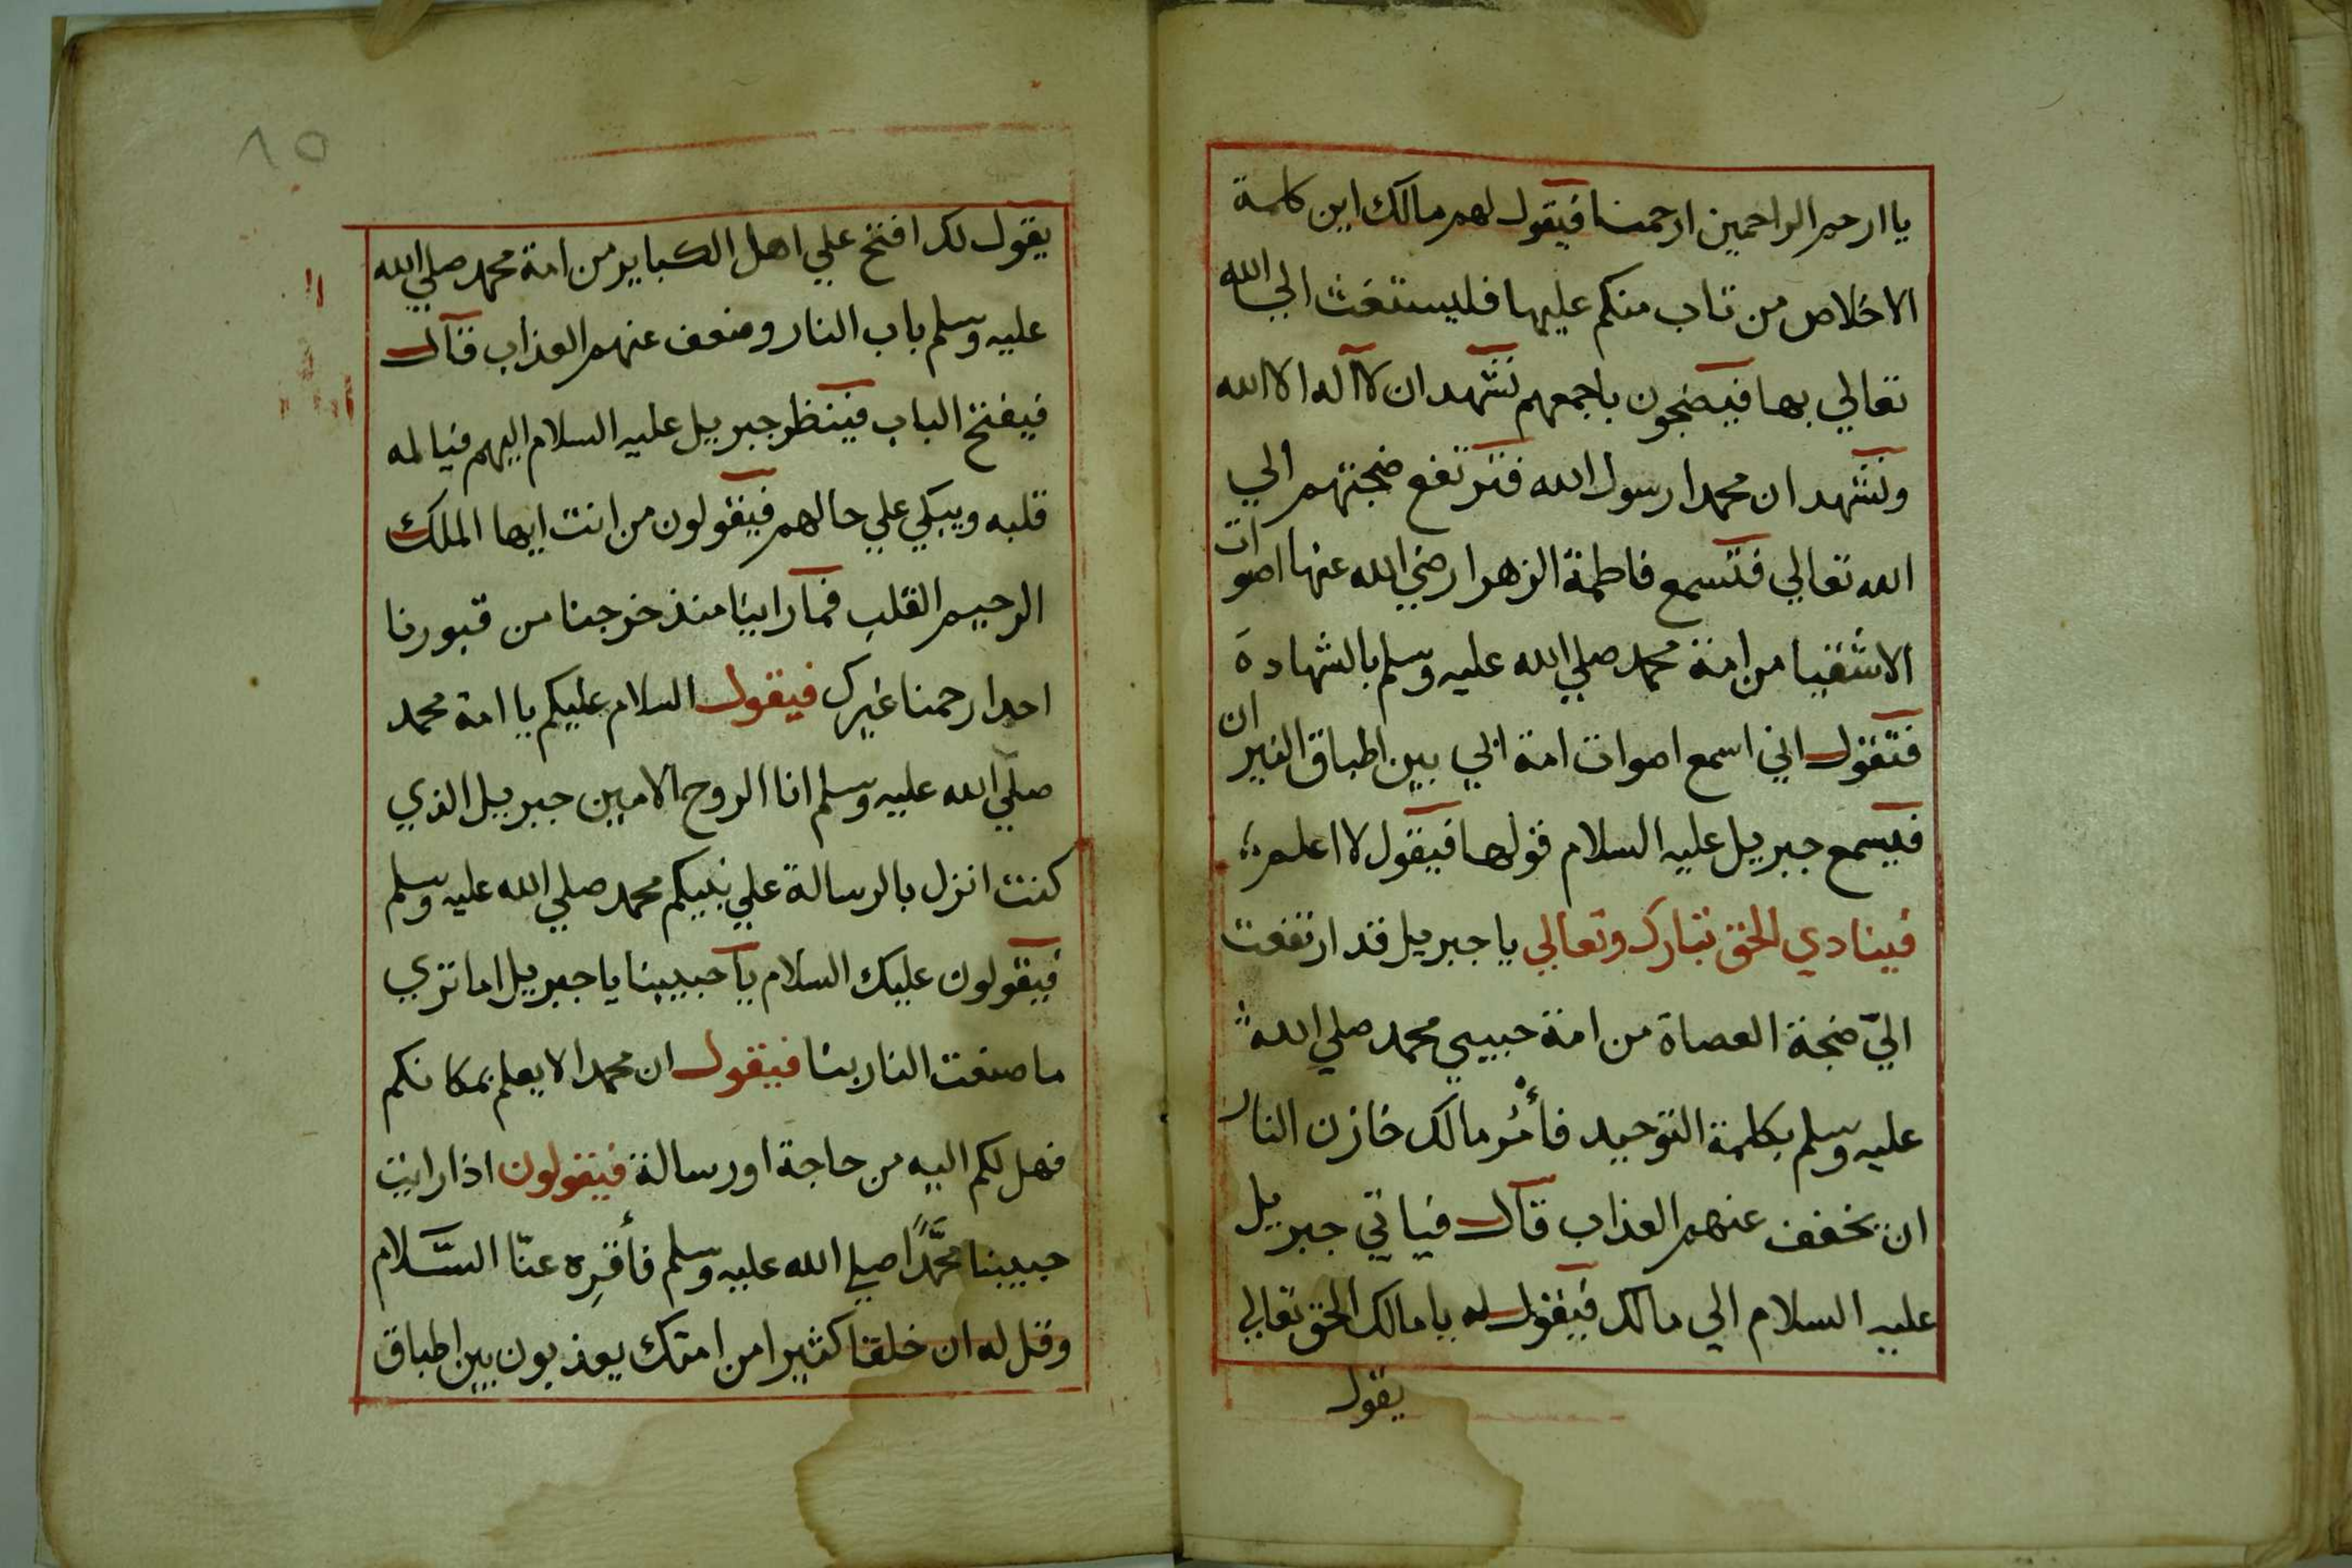 يا ارحم الراحمين ارحمنا فيقول لهم مالك اين كلمة
الاخلاص من تاب منكم عليها فليستغث الي الله
تعالي بها فيضجون باجمعهم نشهد ان لا آله الا الله
ونشهد ان محمدا رسول الله فترتفع ضجتهم الي
الله تعالي فتسمع فاطمة الزهرا رضي الله عنها اصوات
الاشقيا من امة محمد صلي الله عليه وسلم بالشهادة
فتقول اني اسمع اصوات امة ابي بين اطباق النيران
فيسمع جبريل عليه السلام قولها فيقول لا اعلم
فينادي الحق تبارك وتعالي يا جبريل قد ارتفعت
اليّ ضجة العصاة من امة حبيبي محمد صلي الله
عليه وسلم بكلمة التوحيد فأمُر مالك خازن النار
ان يخفف عنهم العذاب قال فياتي جبريل
عليه السلام الي مالك فيقول له يا مالك الحق تعالي
يقول
١٥
يقول لك افتح علي اهل الكباير من امة محمد صلي الله
عليه وسلم باب النار وضعف عنهم العذاب قال
فيفتح الباب فينظر جبريل عليه السلام اليهم فيالمه
قلبه ويبكي علي حالهم فيقولون من انت ايها الملك
الرحيم القلب فما راينا منذ خرجنا من قبورنا
احدا رحمنا غيرك فيقول السلام عليكم يا امة محمد
صلي الله عليه وسلم انا الروح الامين جبريل الذي
كنت انزل بالرسالة علي نبيكم محمد صلي الله عليه وسلم
فيقولون عليك السلام يا حبيبنا يا جبريل اما تري
ما صنعت النار بنا فيقول ان محمدا لا يعلم بمكانكم
فهل لكم اليه من حاجة او رسالة فيقولون اذا رايت
حبيبنا محمَّدًا صلي الله عليه وسلم فأقرِه عنّا السَّلام
وقل له ان خلقا كثيرا من امتك يعذبون بين اطباق